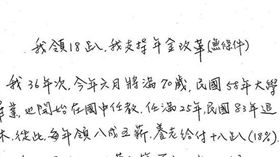 我領18趴,我支持年金改革(無條件)
我36年次,今年六月將滿70歲,民國58年大學
畢業,也開始在國中任教,任滿25年,民國83年退
休,從此,每年領八成立薪,養老給付十八趴(18%)